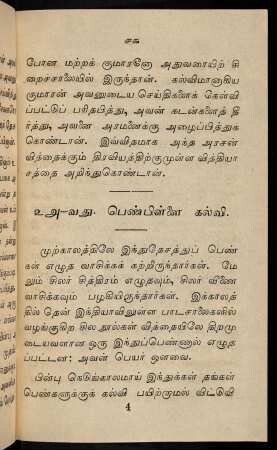 ௪௧
போன மற்றக் குமாரனோ அதுவரையிற் சி
றைச்சாலையில் இருந்தான். கல்விமானாகிய
குமாரன் அவனுடைய செய்திகளைக் கேள்வி
ப்பட்டுப் பரிதபித்து, அவன் கடன்களைத் தீ
ர்த்து, அவனை அரமனைக்கு அழைப்பித்துக்
கொண்டான். இவ்விதமாக அந்த அரசன்
வித்தைக்கும் திரவியத்திற்குமுள்ள வித்தியா
சத்தை அறிந்துகொண்டான்.
௨௮-வது. பெண்பிள்ளை கல்வி.
முற்காலத்திலே இந்துதேசத்துப் பெண்
கள் எழுத வாசிக்கக் கற்றிருந்தார்கள். மே
லும் சிலர் சித்திரம் எழுதவும், சிலர் வீணை
வாசிக்கவும் பழகியிருந்தார்கள். இக்காலத்
தில் தென் இந்தியாவிலுள்ள பாடசாலைகளில்
வழங்குகிற சில நூல்கள் வித்தையிலே திறமு
டையவளான ஒரு இந்துப்பெண்ணால் எழுத
ப்பட்டன: அவள் பெயர் ஔவை.
பின்பு நெடுங்காலமாய் இந்துக்கள் தங்கள்
பெண்களுக்குக் கல்வி பயிற்றாமல் விட்டுவி
4